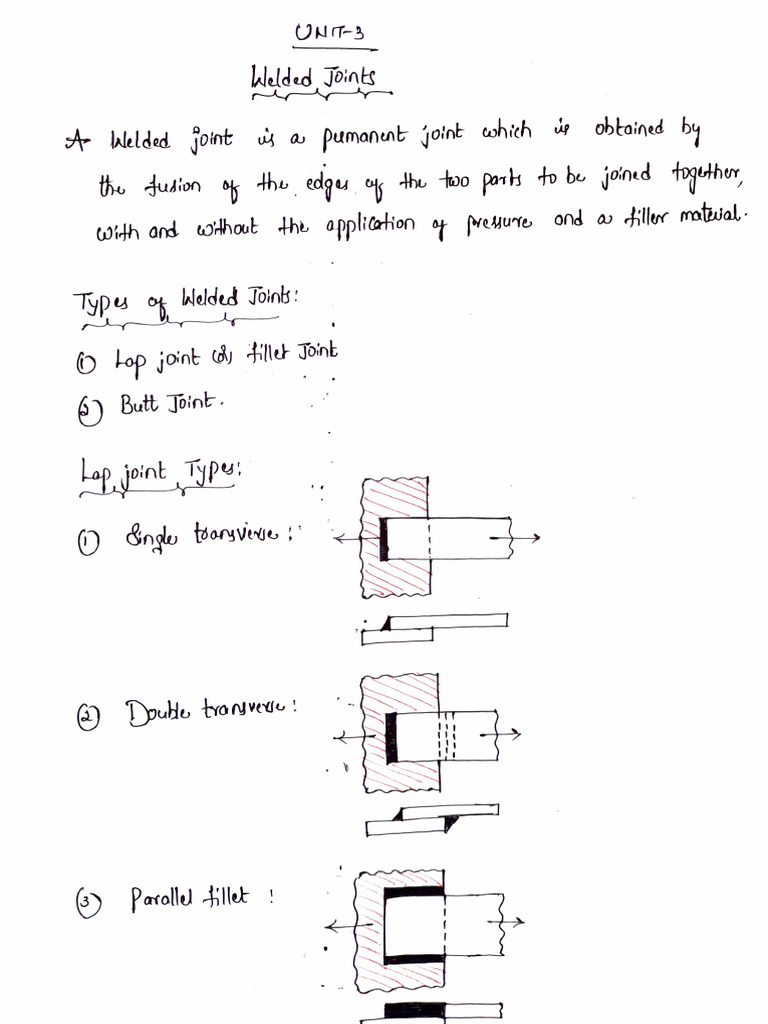 UNIT-3
Welded Joints
A Welded joint is a permanent joint which is obtained by
the fusion of the edges of the two parts to be joined together,
with and without the application of pressure and a filler material.
Types of Welded Joints:
① Lap joint (or) fillet Joint
② Butt Joint.
Lap joint Types:
① Single transverse:
② Double transverse:
③ Parallel fillet :